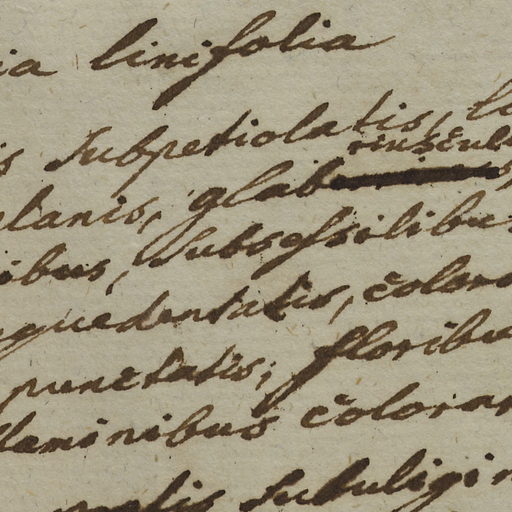 ia linifolia
is subpetiolatis, la
riuscul
planis, glab
ibus, subsessilibus
quedentatis, colora
punctatis; floribu
laminibus coloran
subuligin